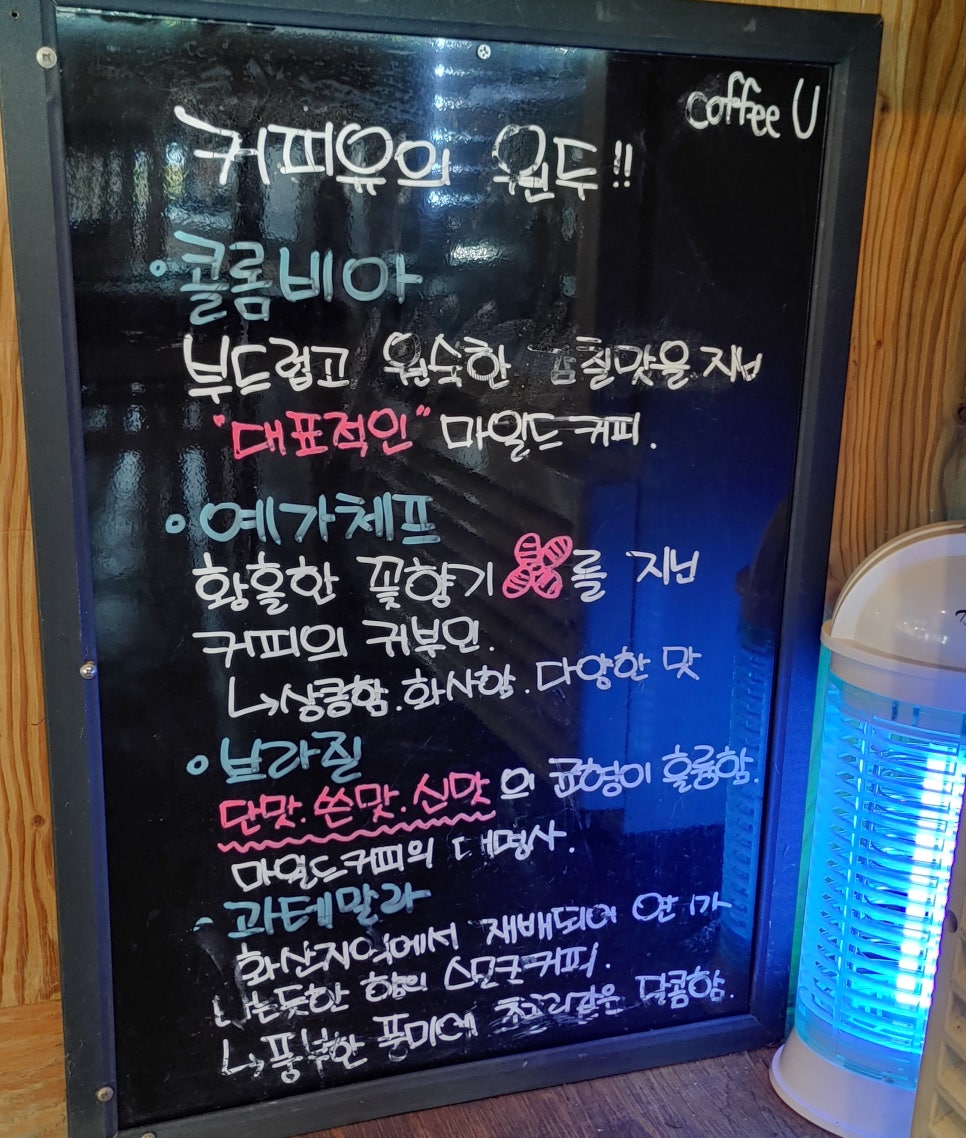 coffee U
커피유의 원두!!
• 콜롬비아
부드럽고 원숙한 감칠맛을 지닌
"대표적인" 마일드커피.
• 예가체프
황홀한 꽃향기를 지닌
커피의 귀부인.
↳상큼함.화사함.다양한 맛
• 브라질
단맛.쓴맛.신맛의 균형이 훌륭함.
마일드커피의 대명사.
- 과테말라
화산지역에서 재배되어 연기가
나는듯한 향의 스모크커피.
↳풍부한 풍미에 초코리같은 달콤함.